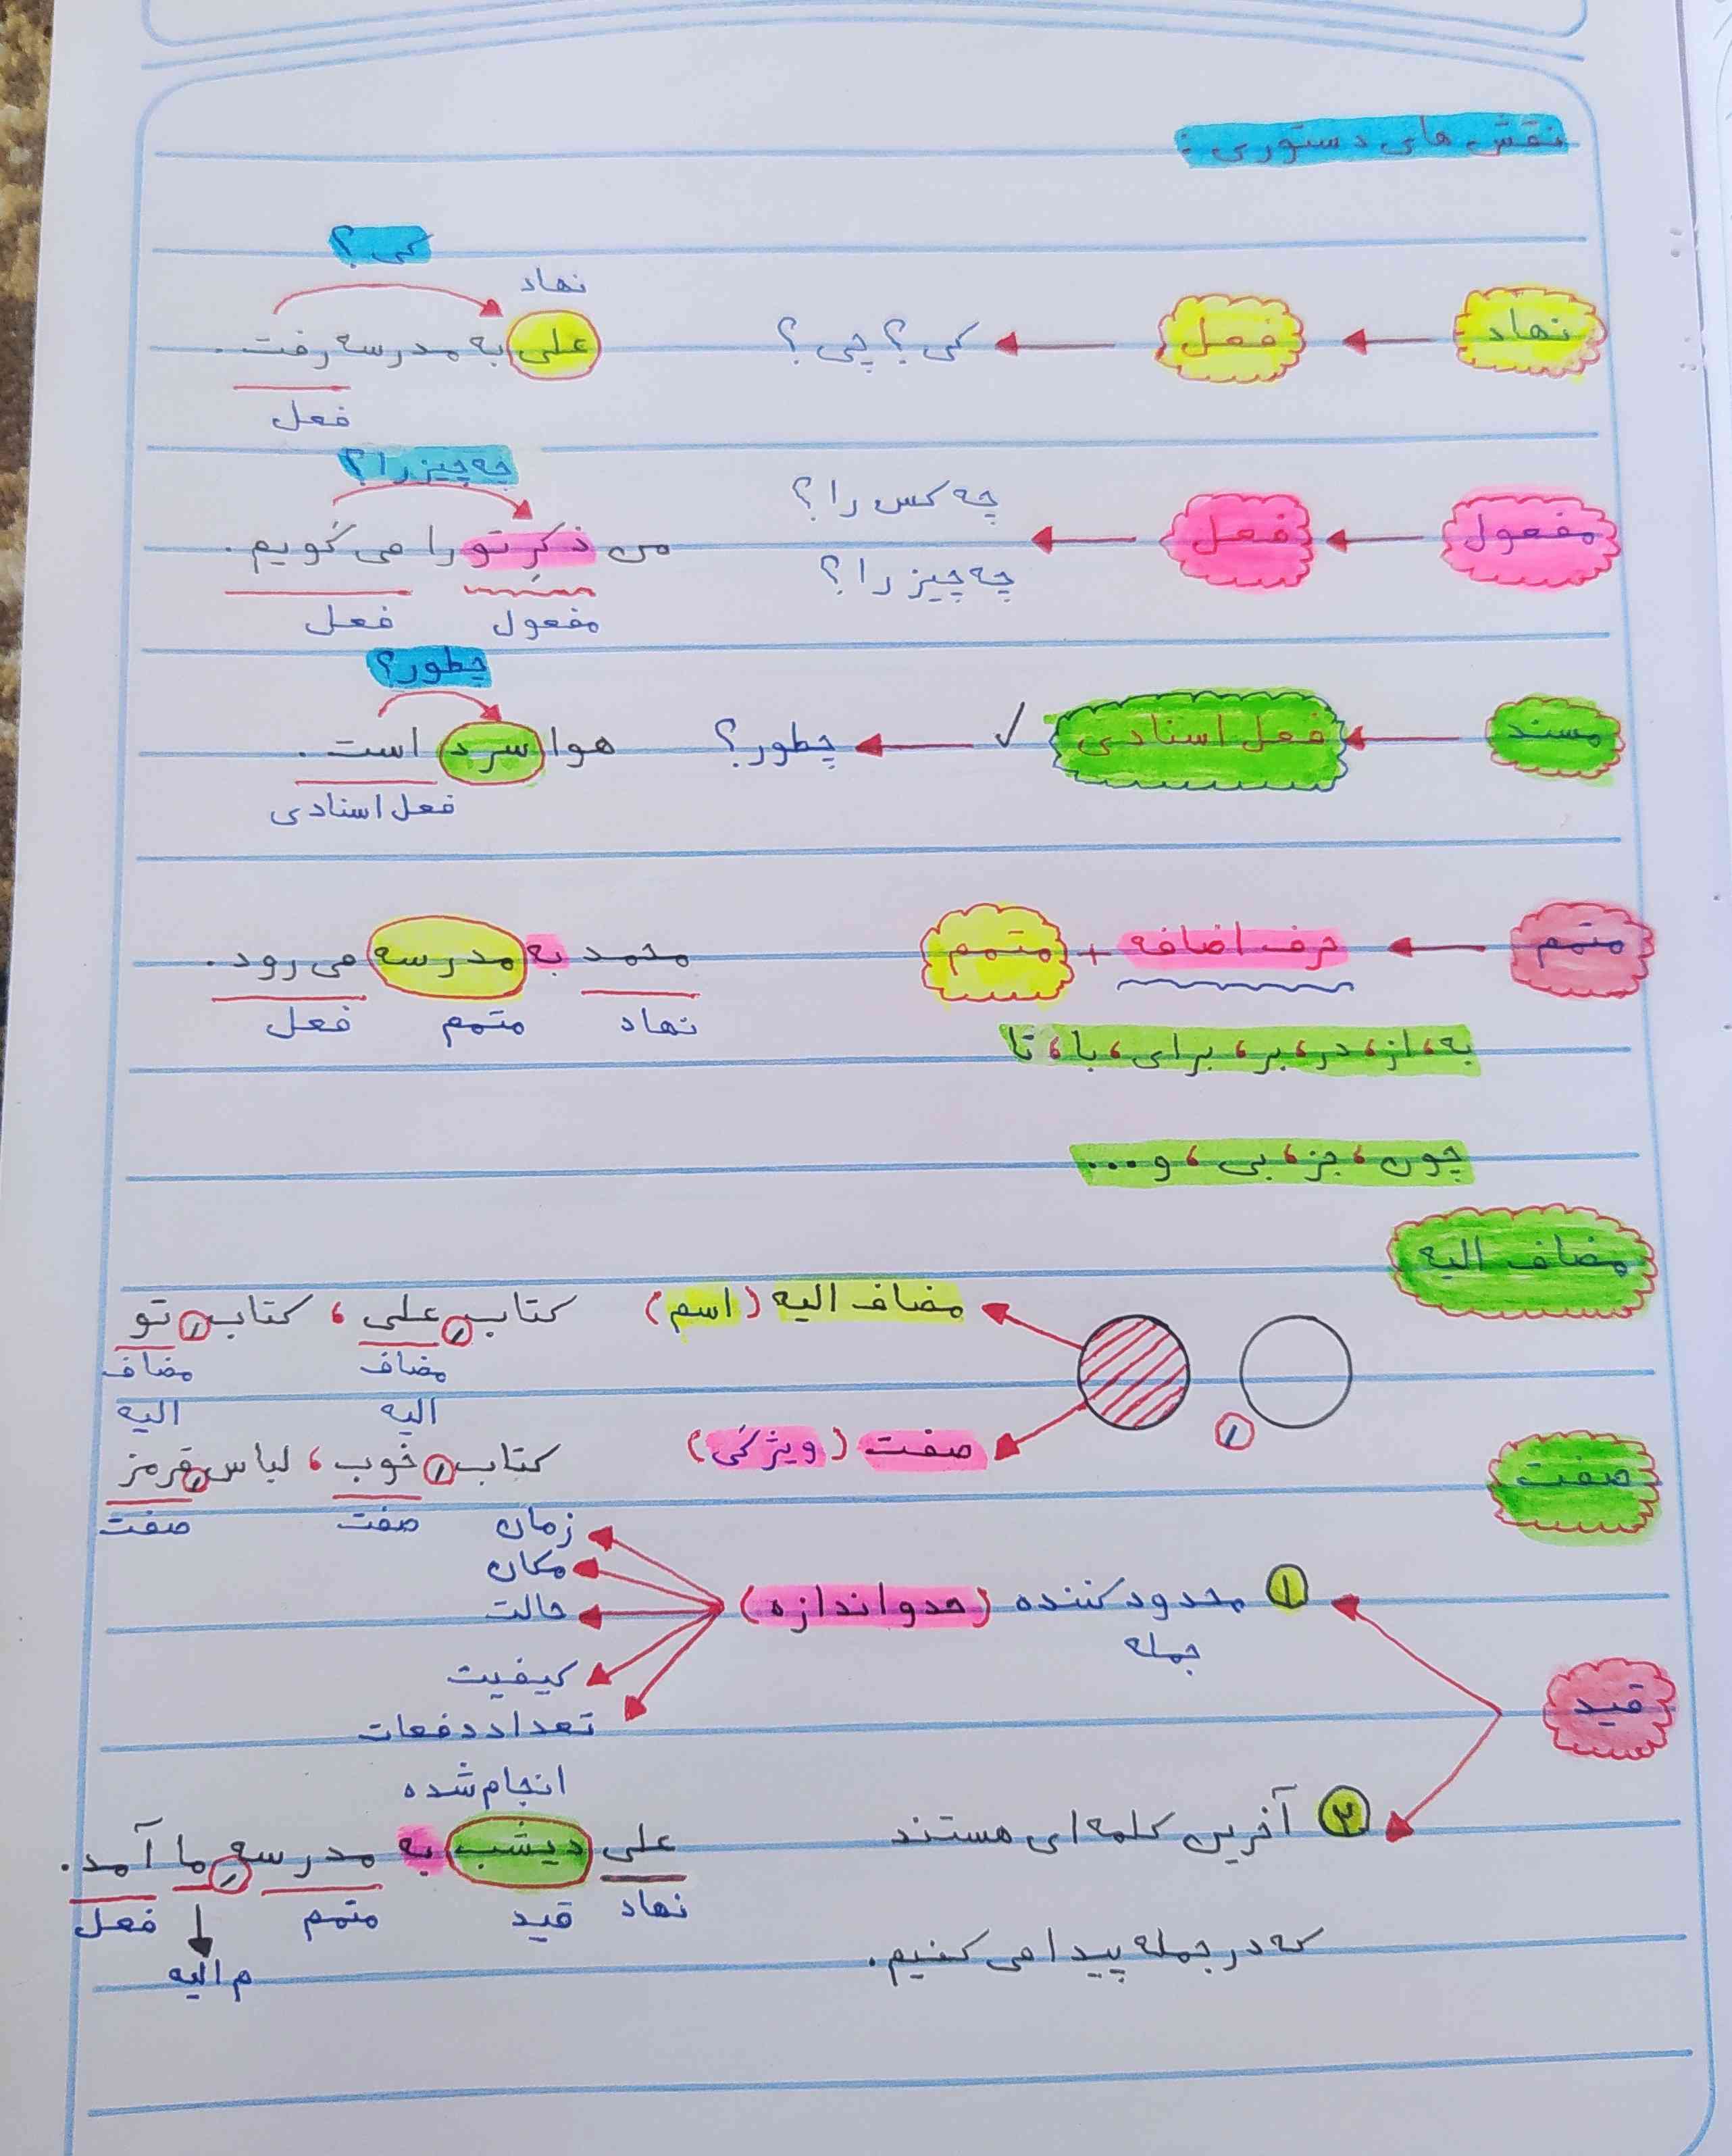 نقش های دستوری :
کی ؟
نهاد
نهاد فعل کی ؟ چی ؟ علی به مدرسه رفت .
فعل
چه چیز را ؟
چه کس را ؟
مفعول فعل من ذکرِ تو را می گویم .
چه چیز را ؟
مفعول فعل
چطور؟
مسند فعل اسنادی ✓ چطور؟ هوا سرد است .
فعل اسنادی
متمم حرف اضافه + متمم محمد به مدرسه می رود .
نهاد متمم فعل
به ، از ، در ، بر ، برای ، با ، تا
چون ، جز ، بی ، و ...
مضاف الیه
مضاف الیه (اسم) کتابِ علی ، کتابِ تو
مضاف الیه مضاف الیه
صفت
صفت (ویژگی) کتابِ خوب ، لباسِ قرمز
صفت صفت
قید
۱ محدود کننده جمله (حد و اندازه)
زمان
مکان
حالت
کیفیت
تعداد دفعات انجام شده
۲ آخرین کلمه ای هستند
که در جمله پیدا می کنیم .
علی دیشب به مدرسهِ ما آمد .
نهاد قید متمم فعل
م الیه